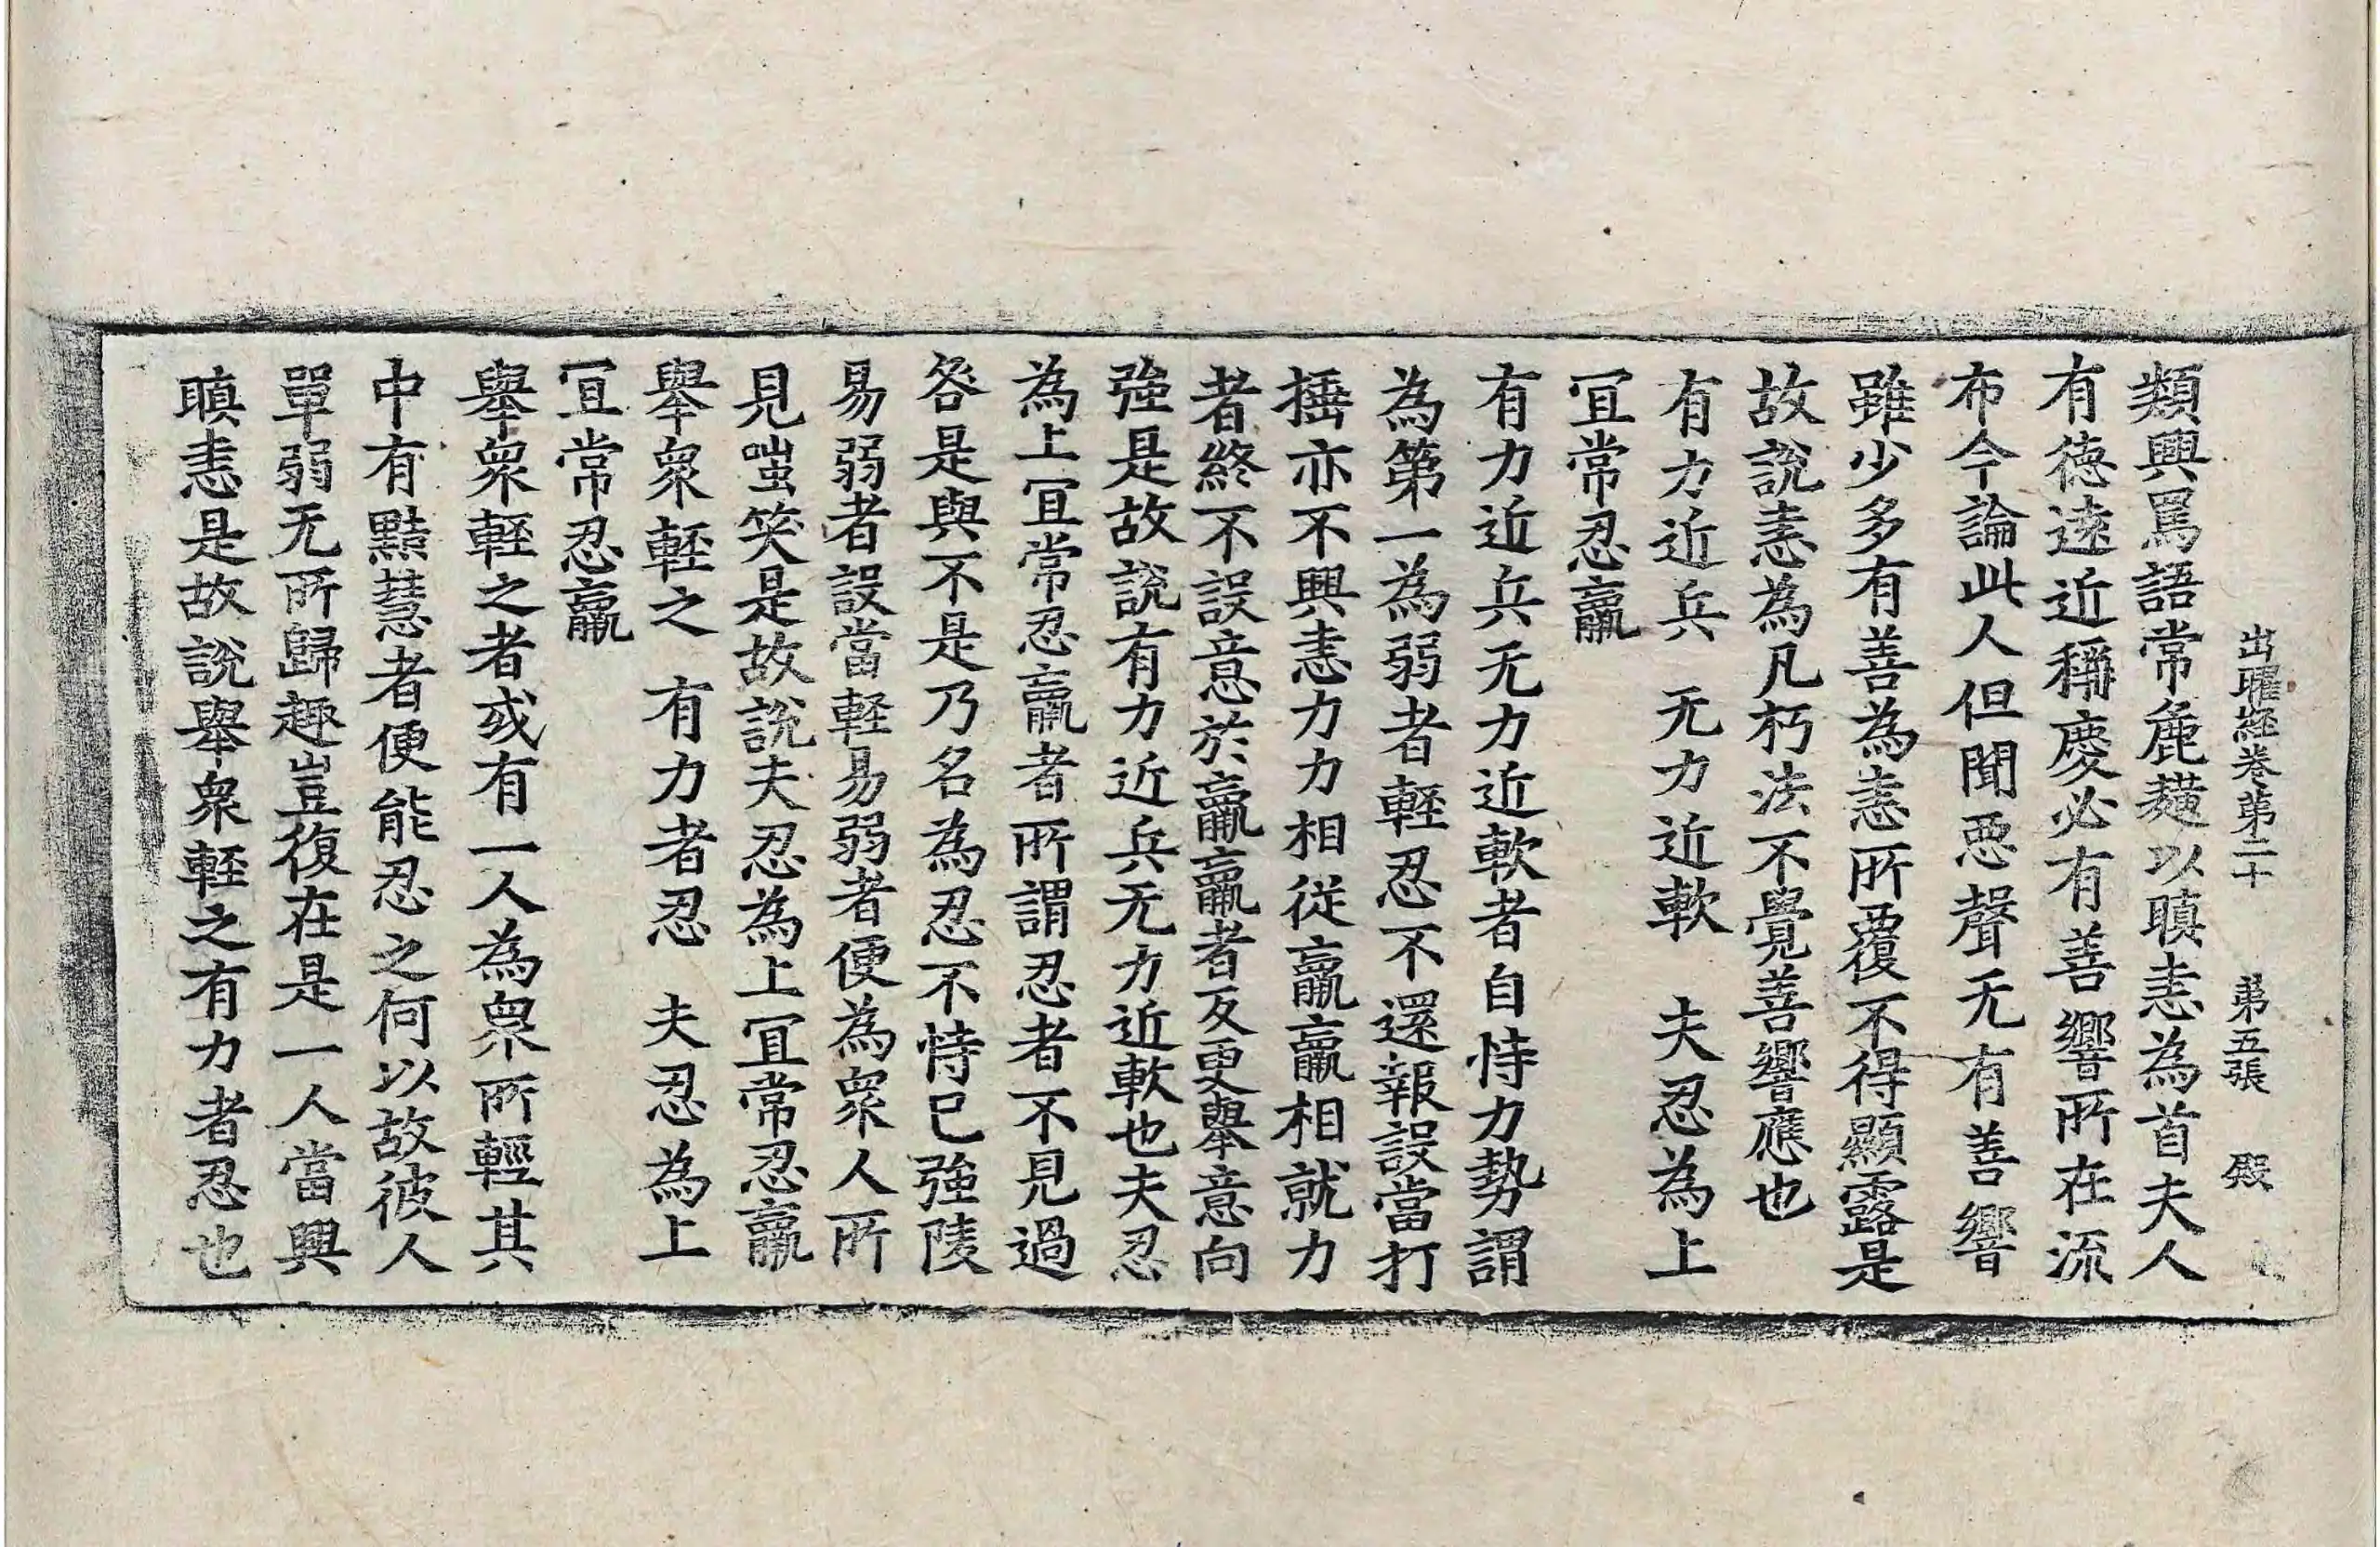 出曜經卷第二十 第五張 殿
類興罵語常麁獷以瞋恚為首夫人
有德遠近稱慶必有善響所在流
布今論此人但聞惡聲无有善響
雖少多有善為恚所覆不得顯露是
故說恚為凡朽法不覺善響應也
有力近兵 无力近軟 夫忍為上
冝常忍羸
有力近兵无力近軟者自恃力勢謂
為第一為弱者輕忍不還報設當打
捶亦不興恚力力相從羸羸相就力
者終不誤意於羸羸者反更舉意向
強是故說有力近兵无力近軟也夫忍
為上冝常忍羸者所謂忍者不見過
咎是與不是乃名為忍不恃已強陵
易弱者設當輕易弱者便為衆人所
見嗤笑是故說夫忍為上冝常忍羸
舉衆輕之 有力者忍 夫忍為上
冝常忍羸
舉衆輕之者或有一人為衆所輕其
中有黠慧者便能忍之何以故彼人
單弱无所歸趣豈復在是一人當興
瞋恚是故說舉衆輕之有力者忍也